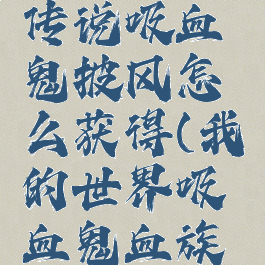 传说吸血
鬼披风怎
么获得(我
的世界吸
血鬼血族